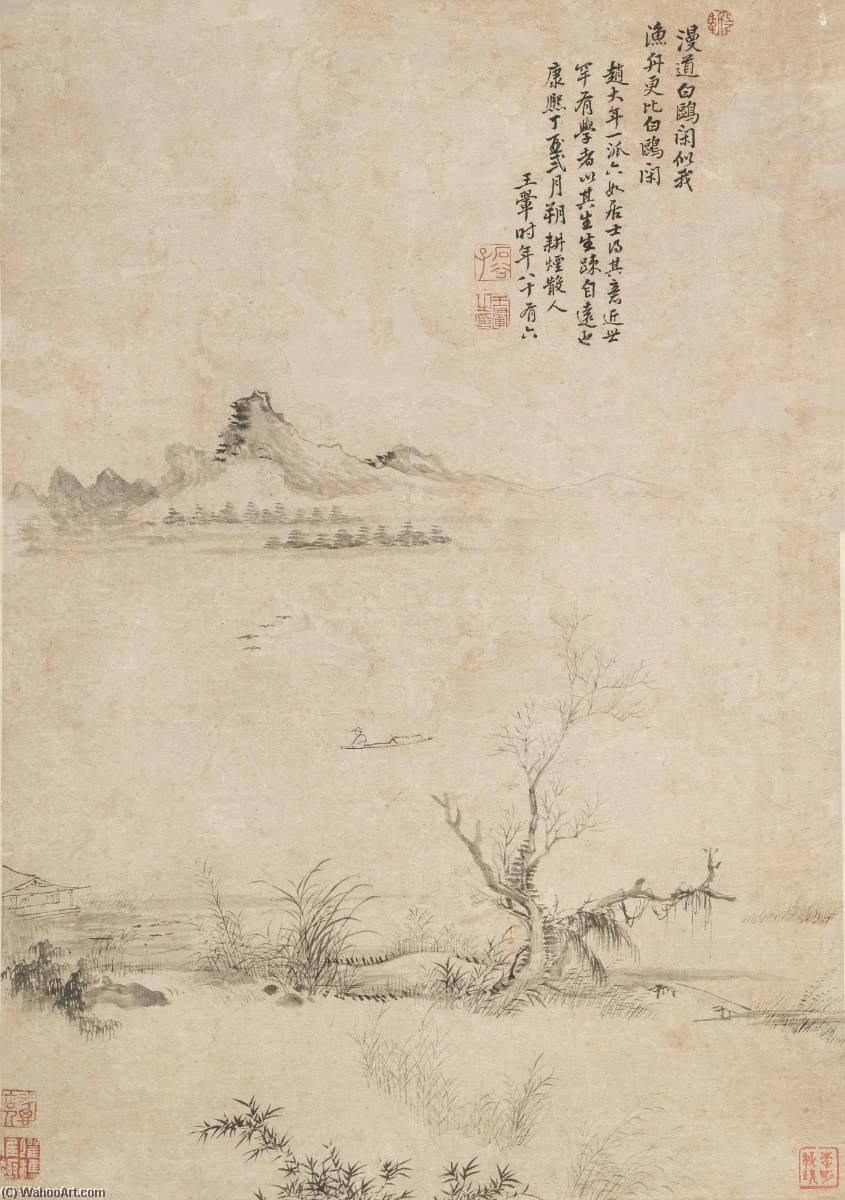 漫道白鷗閑似我
漁舟更比白鷗閑
趙大年一派六如居士得其意近世
罕有學者以其生生疎自遠也
康熙丁酉弍月朔耕煙散人
王翬時年八十有六
石谷子
王翬之印
(C) WahooArt.com